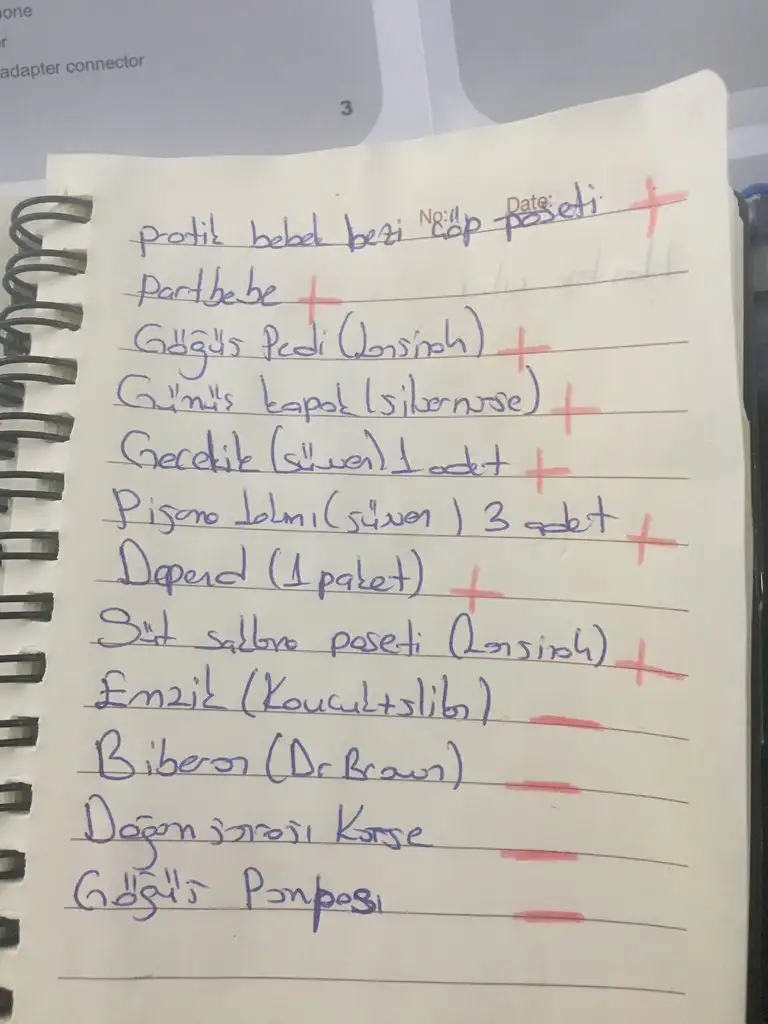 one
r
adapter connector
3
No:
Date:
pratik bebek bezi çöp poseti +
Partbebe +
Göğüs Pedi (Lansinoh) +
Gümüs kapak (silvernose) +
Gecelik (süwen) 1 adet +
Pijama takımı (süwen) 3 adet +
Depend (1 paket) +
Süt saklama poseti (Lansinoh) +
Emzik (Kaucuk+slikn) -
Biberon (Dr Brown) -
Doğum sonrası Korse -
Göğüs Pompası -